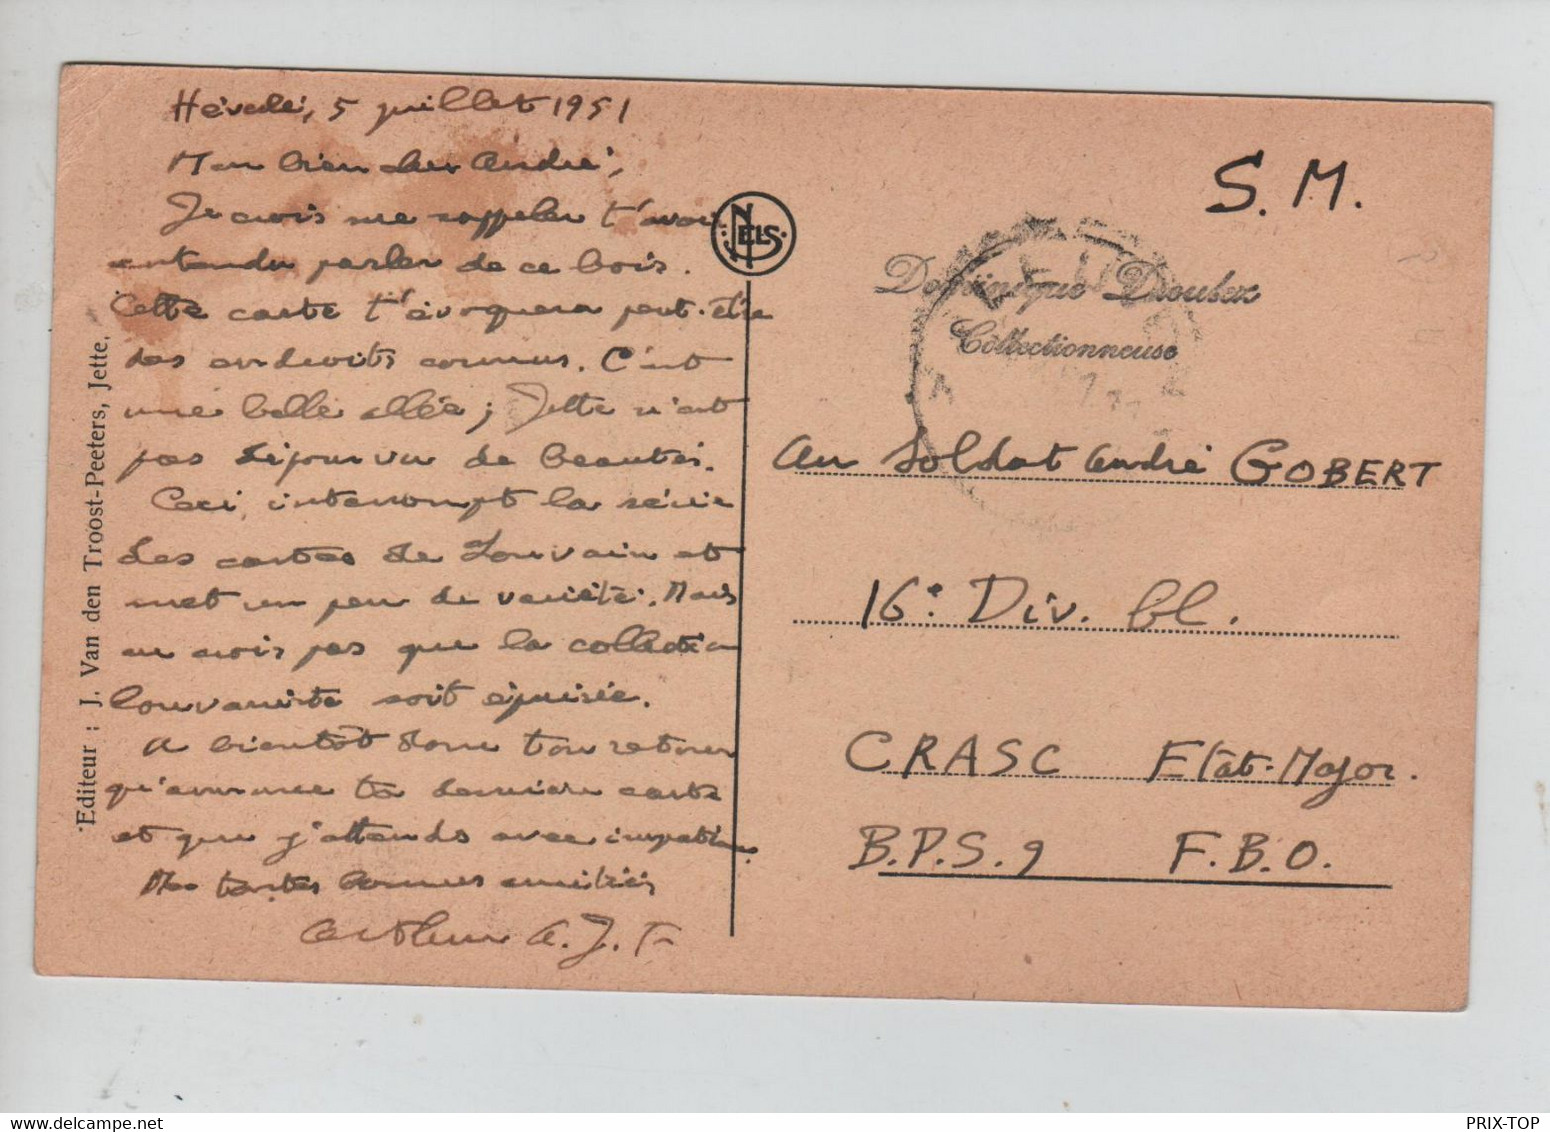 Hévrlé, 5 juillet 1951
Mon bien cher André,
Je crois me rappeler t'avoir
entendu parler de ce bois.
Cette carte t'évoquera peut-être
des endroits connus. C'est
une belle allée ; Jette n'est
pas dépourvu de beautés.
Ceci interrompt la série
des cartes de Louvain et
met un peu de variété. Mais
ne crois pas que la collection
louvaniste soit épuisée.
A bientôt donc ton retour
qu'annonce ta dernière carte
et que j'attends avec impatience
Mes toutes bonnes amitiés
A. J. F
Editeur : J. Van den Troost-Peeters, Jette.
NELS
S. M.
Dominique
Collectionneuse
Au Soldat André GOBERT
16e Div. bl.
CRASC Etat-Major.
B.P.S. 9 F.B.O.
PRIX-TOP